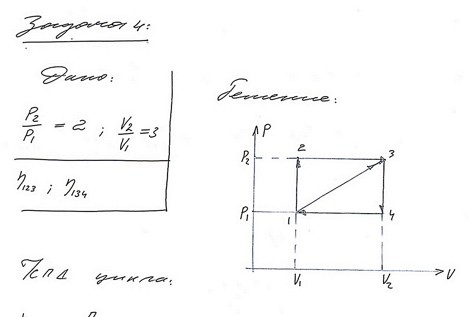 Задача 4:
Дано:
P2/P1 = 2 ; V2/V1 = 3
η123 ; η134
Решение:
P
P2
2
3
P1
1
4
V1
V2
V
КПД цикла: